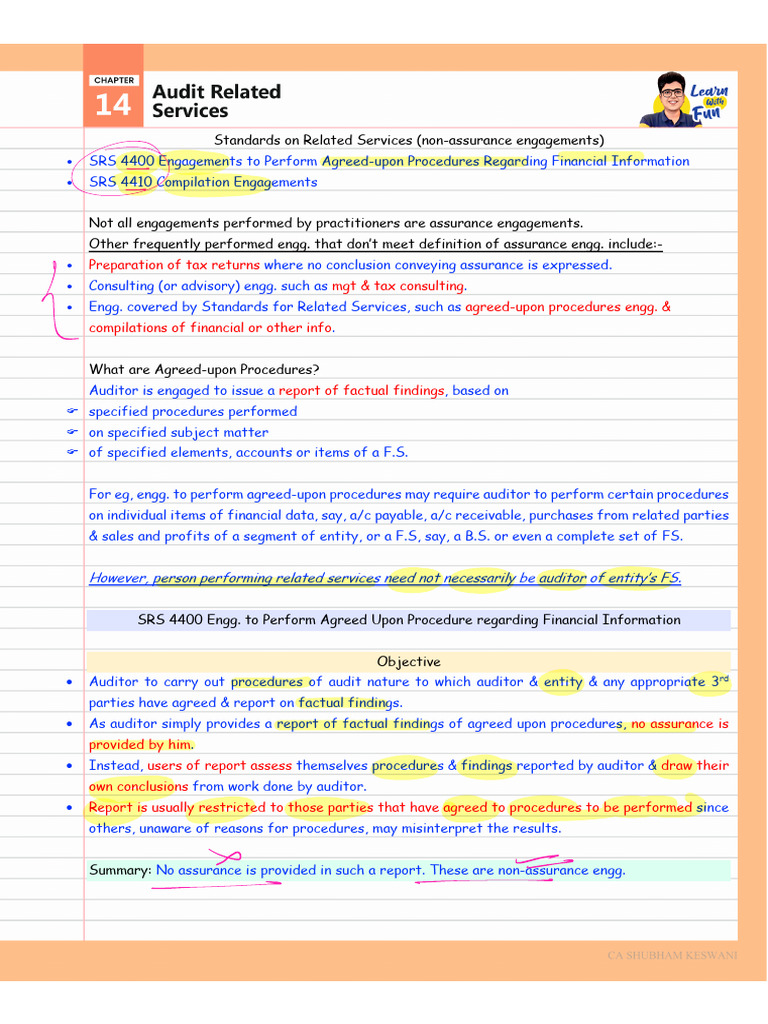 CHAPTER
14
Audit Related
Services
Learn
With
Fun
Standards on Related Services (non-assurance engagements)
• SRS 4400 Engagements to Perform Agreed-upon Procedures Regarding Financial Information
• SRS 4410 Compilation Engagements
Not all engagements performed by practitioners are assurance engagements.
Other frequently performed engg. that don't meet definition of assurance engg. include:-
• Preparation of tax returns where no conclusion conveying assurance is expressed.
• Consulting (or advisory) engg. such as mgt & tax consulting.
• Engg. covered by Standards for Related Services, such as agreed-upon procedures engg. &
compilations of financial or other info.
What are Agreed-upon Procedures?
Auditor is engaged to issue a report of factual findings, based on
☞ specified procedures performed
☞ on specified subject matter
☞ of specified elements, accounts or items of a F.S.
For eg, engg. to perform agreed-upon procedures may require auditor to perform certain procedures
on individual items of financial data, say, a/c payable, a/c receivable, purchases from related parties
& sales and profits of a segment of entity, or a F.S, say, a B.S. or even a complete set of FS.
However, person performing related services need not necessarily be auditor of entity's FS.
SRS 4400 Engg. to Perform Agreed Upon Procedure regarding Financial Information
Objective
• Auditor to carry out procedures of audit nature to which auditor & entity & any appropriate 3rd
parties have agreed & report on factual findings.
• As auditor simply provides a report of factual findings of agreed upon procedures, no assurance is
provided by him.
• Instead, users of report assess themselves procedures & findings reported by auditor & draw their
own conclusions from work done by auditor.
• Report is usually restricted to those parties that have agreed to procedures to be performed since
others, unaware of reasons for procedures, may misinterpret the results.
Summary: No assurance is provided in such a report. These are non-assurance engg.
CA SHUBHAM KESWANI